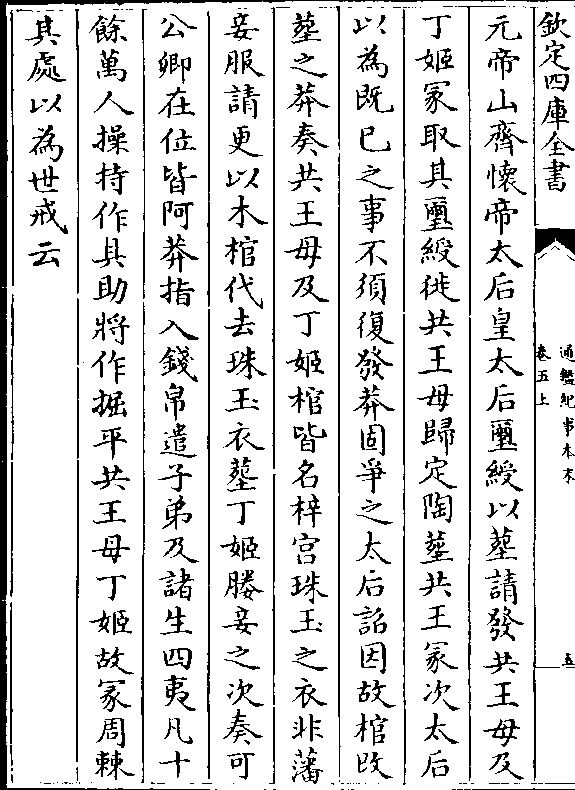 欽定四庫全書
通鑑紀事本末
卷五上
五
元帝山齊懷帝太后皇太后璽綬以葬請發共王母及
丁姬冢取其璽綬徙共王母歸定陶葬共王冢次太后
以為既已之事不須復發莽固爭之太后詔因故棺改
葬之莽奏共王母及丁姬棺皆名梓宫珠玉之衣非藩
妾服請更以木棺代去珠玉衣葬丁姬媵妾之次奏可
公卿在位皆阿莽指入錢帛遣子弟及諸生四夷凡十
餘萬人操持作具助將作掘平共王母丁姬故冢周棘
其處以為世戒云